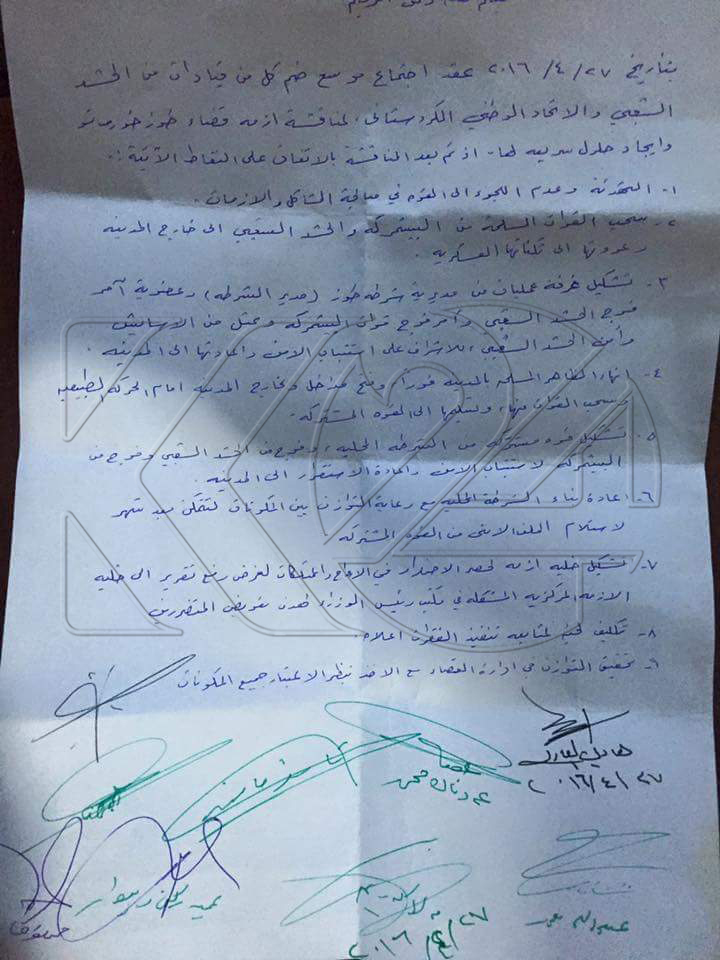 بتاريخ ٢٧/ ٤/ ٢٠١٦ عقد اجتماع موسع ضم كل من قيادات من الحشد
الشعبي والاتحاد الوطني الكردستاني لمناقشة ازمه قضاء طوز خورماتو
وايجاد حلول سريعه لها- اذ تم بعد المناقشة بالاتفاق على النقاط الآتية :-
١- التهدئة وعدم اللجوء الى القوه في معالجة المشاكل والازمات -
٢- سحب القوات المسلحة من البيشمركه والحشد الشعبي الى خارج المدينه
وعودتها الى ثكناتها العسكريه .
٣- تشكيل غرفة عمليات من مديرية شرطه طوز (مدير الشرطه) وعضوية آمر
فوج الحشد الشعبي وآمر فوج قوات البيشمركه وممثل من الاسايش
وأمن الحشد الشعبي، للاشراف على استتباب الامن واعادتها الى المدينه .
٤- انهاء المظاهر المسلحه بالمدينه فورا، وفتح مداخل ومخارج المدينه امام الحركه الطبيعيه
وسحب القوات منها، وتسليمها الى القوه المشتركه-
٥- تشكيل قوه مشتركه من الشرطه المحليه، وفوج من الحشد الشعبي وفوج من
البيشمركه لاستتباب الامن واعادة الاستقرار الى المدينه .
٦- اعادة بناء الشرطة المحليه مع رعاية التوازن بين المكونات لتتمكن بعد شهر
لاستلام الملف الامني من القوه المشتركه
٧- تشكيل خليه ازمه لحصر الاضرار في الارواح والممتلكات لغرض رفع تقرير الى خليه
الازمه المركزيه المشكله في مكتب رئيس الوزراء لغرض تعويض المتضررين
٨- تكليف لجنة لمتابعه تنفيذ الفقرات اعلاه .
٩- تحقيق التوازن في ادارة القضاء مع الاخذ بنظر الاعتبار جميع المكونات
٢٠١٦/٤/٢٧
٢٧/٤/٢٠١٦
K24